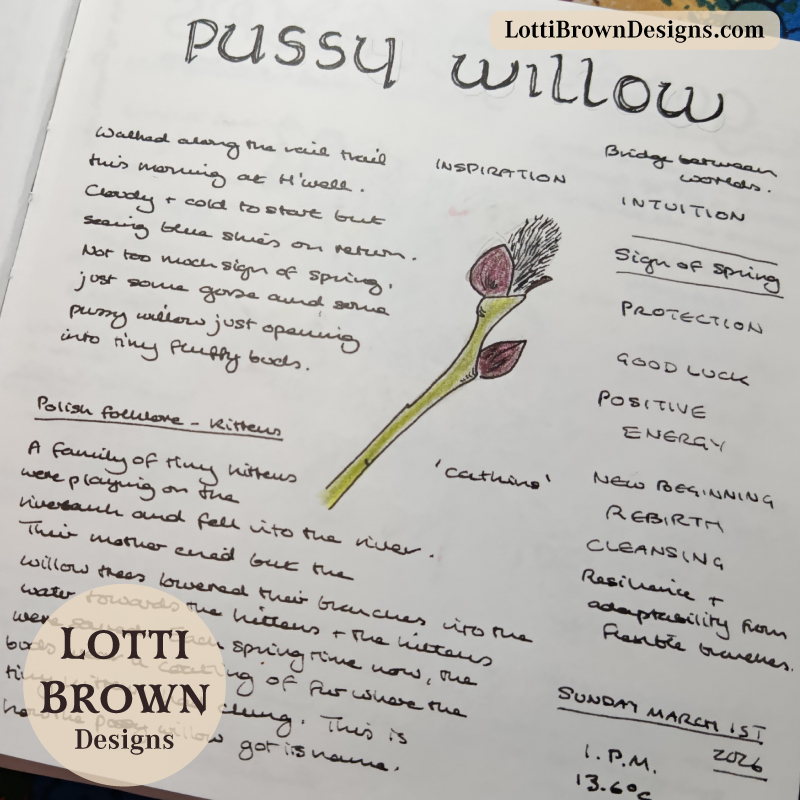 LottiBrownDesigns.com
PUSSY WILLOW
Walked along the rail trail
this morning at H'well.
Cloudy + cold to start but
seeing blue skies on return.
Not too much sign of spring,
just some gorse and some
pussy willow just opening
into tiny fluffy buds.
INSPIRATION
Bridge between
worlds.
INTUITION
Sign of spring
PROTECTION
GOOD LUCK
POSITIVE
ENERGY
NEW BEGINNING
REBIRTH
CLEANSING
Resilience +
adaptability from
flexible branches.
'catkins'
Polish folklore - Kittens
A family of tiny kittens
were playing on the
riverbank and fell into the river.
Their mother cried but the
willow trees lowered their branches into the
water towards the kittens + the kittens
were saved. Each spring time now, the
buds a coating of fur where the
tiny clung. This is
how the pussy willow got its name.
SUNDAY MARCH 1ST
2026
1.P.M.
13.6°C
LOTTI
BROWN
Designs